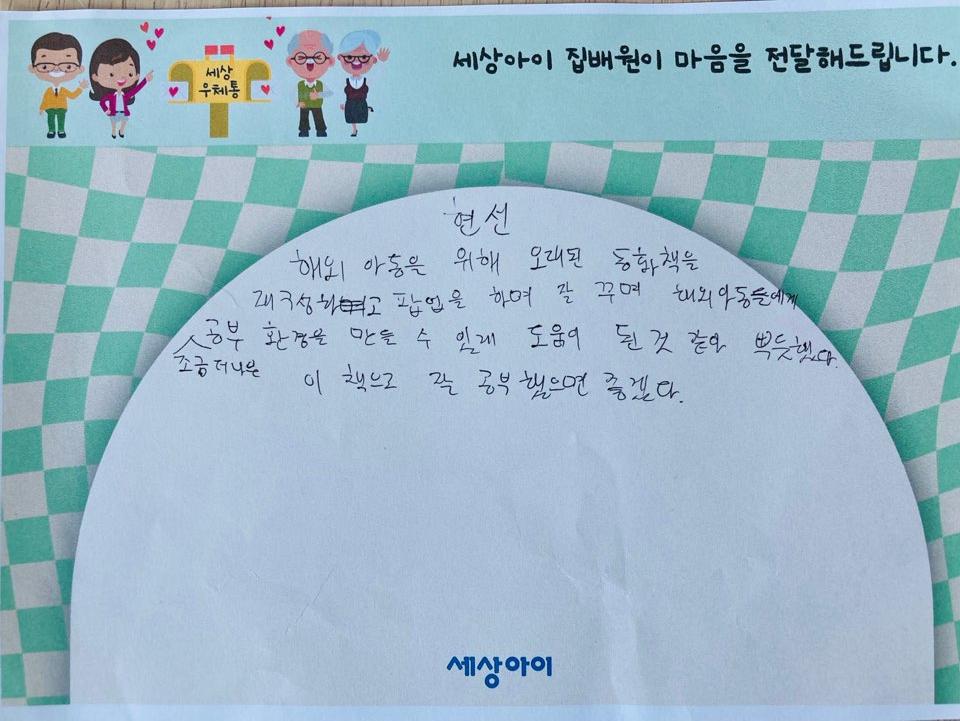 세상
우체통
세상아이 집배원이 마음을 전달해드립니다.
현선
해외 아동을 위해 오래된 동화책을
재구성하고 팝업을 하며 잘 꾸며 해외아동들에게
공부 환경을 만들 수 있게 도움이 된 것 같아 뿌듯했다.
조금 더 나은
이 책으로 잘 공부했으면 좋겠다.
세상아이